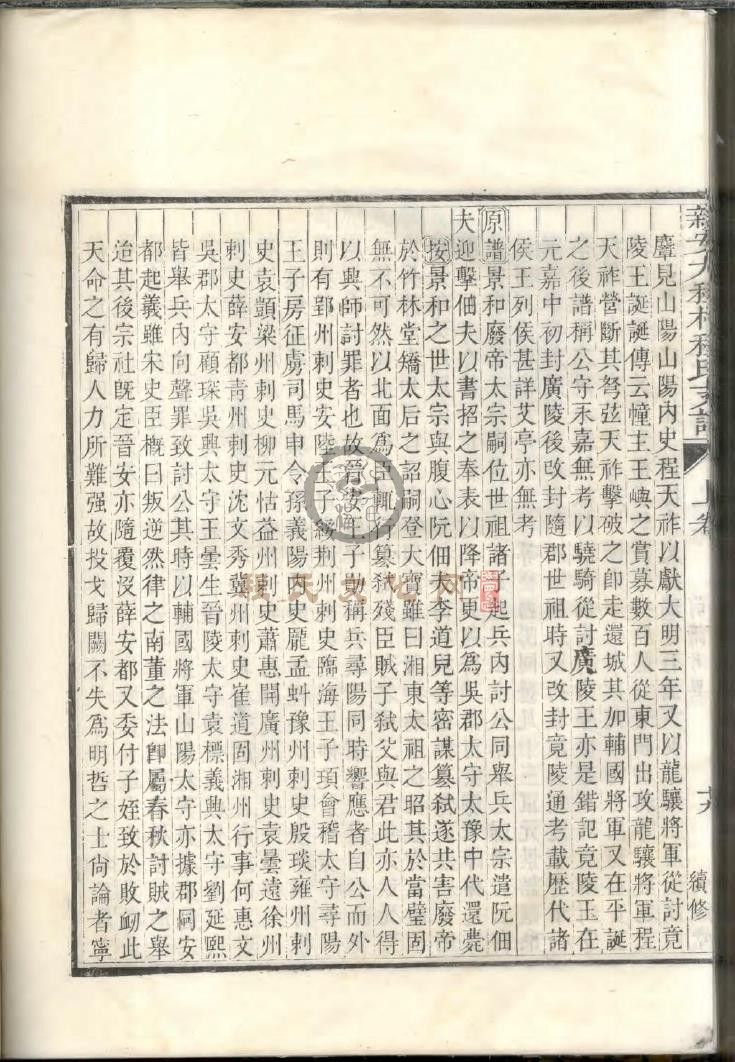 新安大程村程氏支譜
上卷
十八
續修
麐見山陽山陽內史程天祚以獻大明三年又以龍驤將軍從討竟
陵王誕誕傳云幢主王嶼之賞募數百人從東門出攻龍驤將軍程
天祚營斷其弩弦天祚擊破之卽走還城其加輔國將軍又在平誕
之後譜稱公守永嘉無考以驍騎從討廣陵王亦是錯記竟陵王在
元嘉中初封廣陵後改封隨郡世祖時又改封竟陵通考載歷代諸
侯王列侯甚詳艾亭亦無考
原譜景和廢帝太宗嗣位世祖諸子起兵內討公同舉兵太宗遣阮佃
夫迎擊佃夫以書招之奉表以降帝更以為吳郡太守太豫中代還薨
按景和之世太宗與腹心阮佃夫李道兒等密謀篡弒遂共害廢帝
於竹林堂矯太后之詔嗣登大寶雖曰湘東太祖之昭其於當璧固
無不可然以北面爲臣輒行篡弒殘臣賊子弒父與君此亦人人得
以興師討罪者也故晉安王子勛稱兵尋陽同時響應者自公而外
則有郢州刺史安陸王子綏荆州刺史臨海王子頊會稽太守尋陽
王子房征虜司馬申令孫義陽內史龐孟蚪豫州刺史殷琰雍州刺
史袁顗梁州刺史柳元怙益州刺史蕭惠開廣州刺史袁曇遠徐州
刺史薛安都靑州刺史沈文秀冀州刺史崔道固湘州行事何惠文
吳郡太守顧琛吳興太守王曇生晉陵太守袁標義興太守劉延熙
皆舉兵內向聲罪致討公其時以輔國將軍山陽太守亦據郡同安
都起義雖宋史臣槪曰叛逆然律之南董之法卽屬春秋討賊之舉
治其後宗社旣定晉安亦隨覆沒薛安都又委付子姪致於敗衂此
天命之有歸人力所難强故投戈歸闕不失爲明哲之士尙論者寧